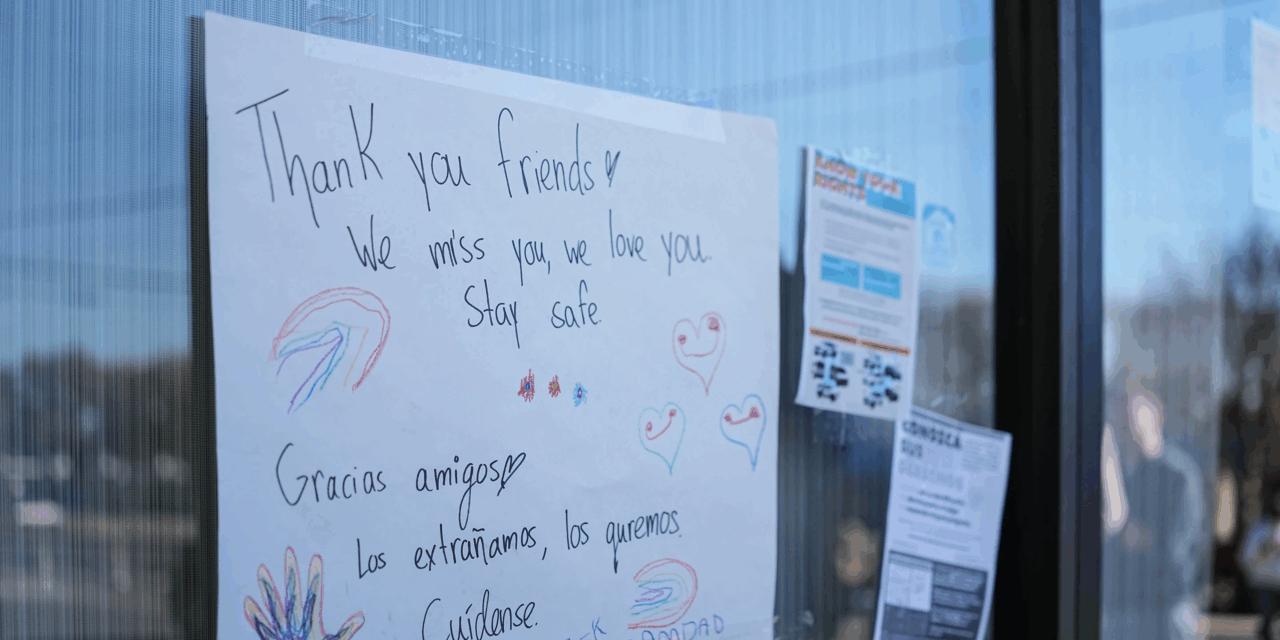 Thank you friends
We miss you, we love you.
Stay safe.
Gracias amigos
Los extrañamos, los quremos.
Cuídense.
KNOW YOUR
RIGHTS
CONOZCA
SUS
DERECHOS